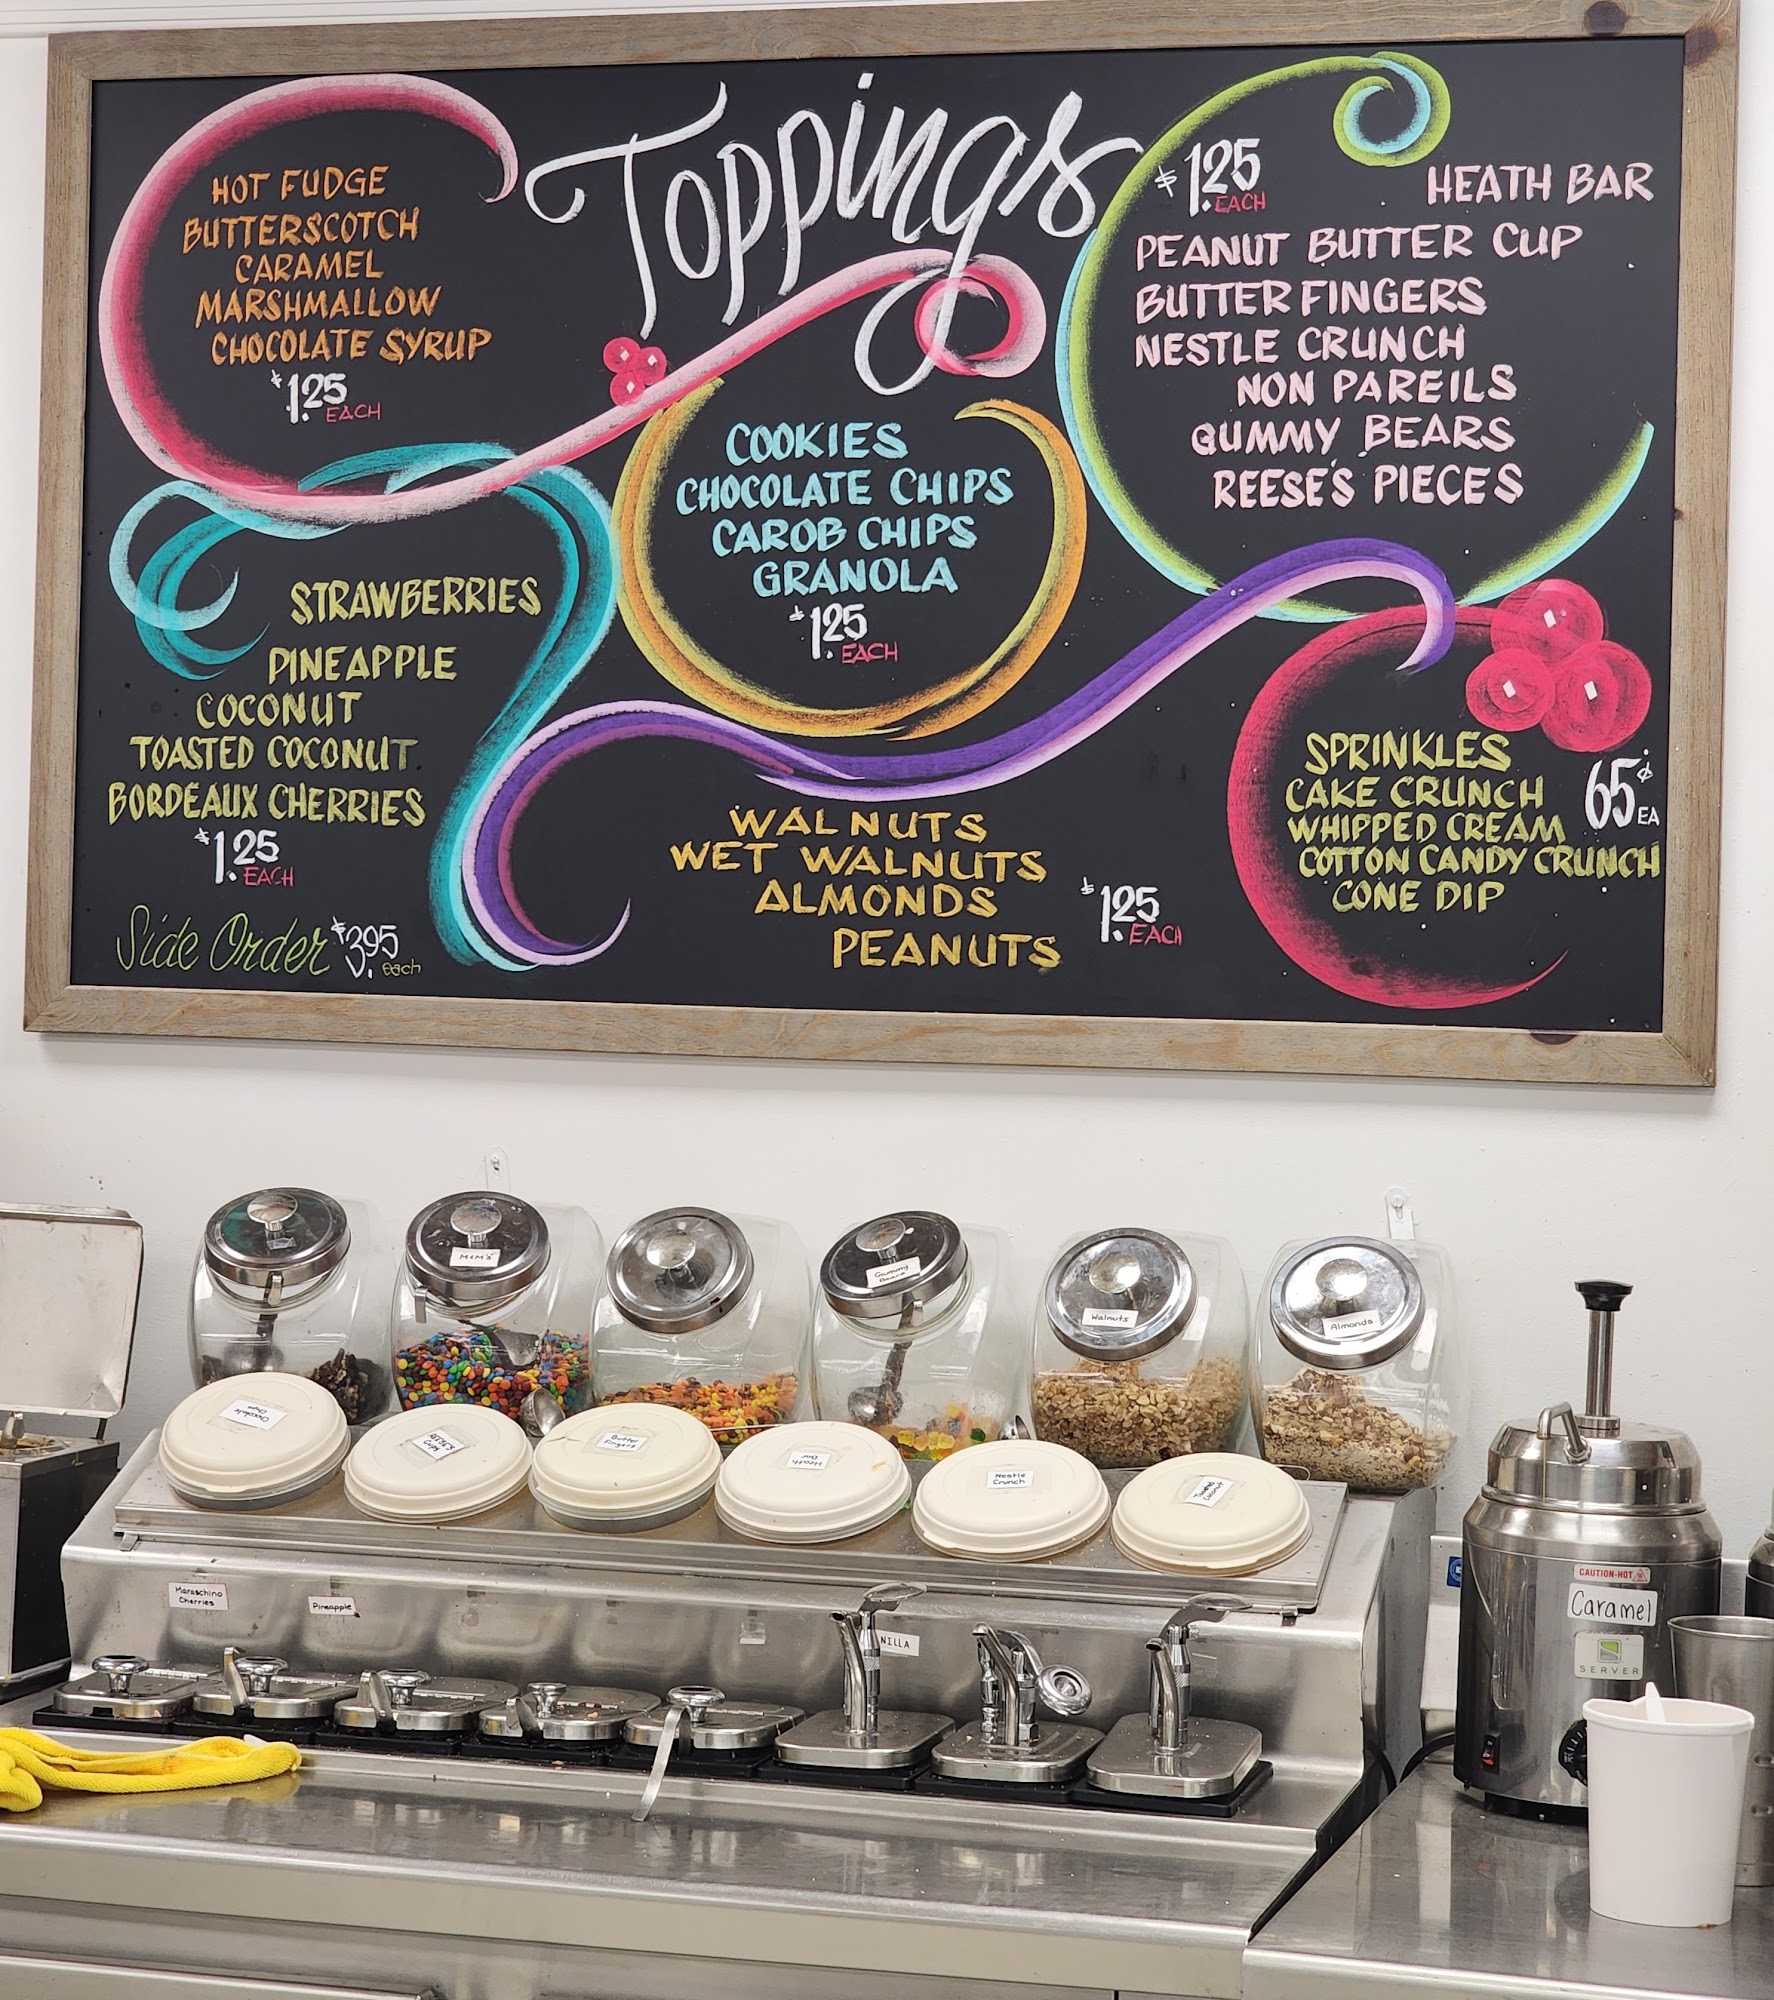 Toppings
HOT FUDGE
BUTTERSCOTCH
CARAMEL
MARSHMALLOW
CHOCOLATE SYRUP
$1.25 EACH
$1.25 EACH
HEATH BAR
PEANUT BUTTER CUP
BUTTERFINGERS
NESTLE CRUNCH
NON PAREILS
GUMMY BEARS
REESE'S PIECES
COOKIES
CHOCOLATE CHIPS
CAROB CHIPS
GRANOLA
$1.25 EACH
STRAWBERRIES
PINEAPPLE
COCONUT
TOASTED COCONUT
BORDEAUX CHERRIES
$1.25 EACH
Side Order $3.95 each
WALNUTS
WET WALNUTS
ALMONDS
PEANUTS
$1.25 EACH
SPRINKLES
CAKE CRUNCH
WHIPPED CREAM
COTTON CANDY CRUNCH
CONE DIP
65¢ EA
M&M's
Gummy
Bears
Walnuts
Almonds
Chocolate
Chips
REESE'S
CUPS
Butter
Fingers
Heath
Bar
Nestle
Crunch
Toasted
Coconut
Maraschino
Cherries
Pineapple
NILLA
CAUTION-HOT
Caramel
SERVER